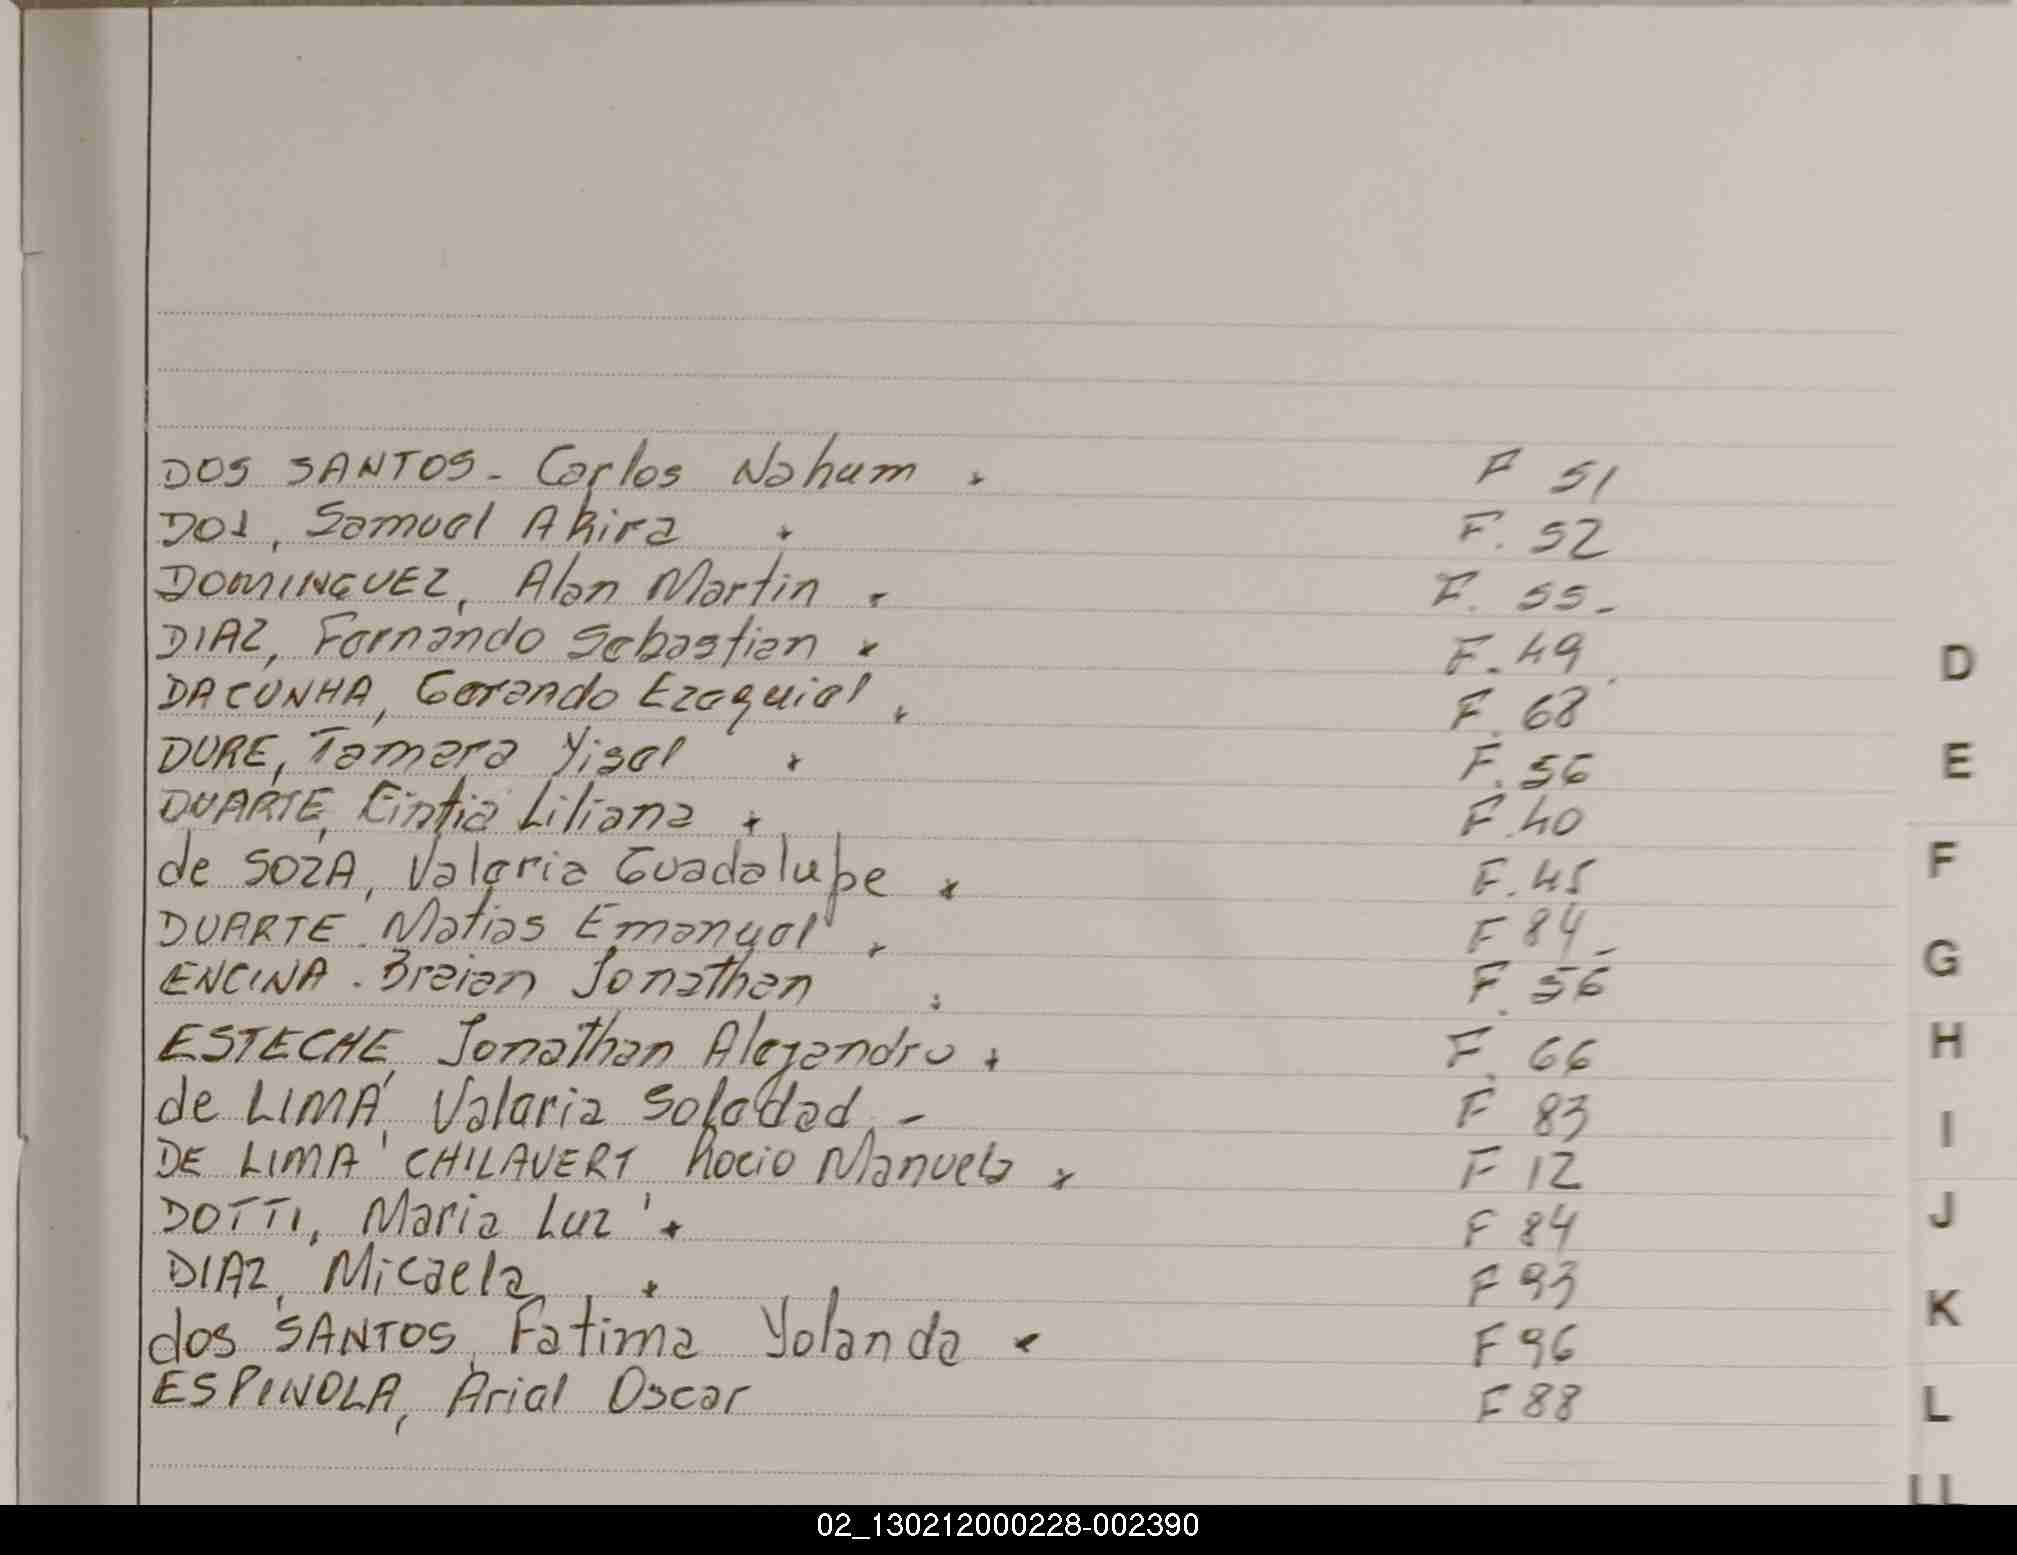 DOS SANTOS - Carlos Nahum F 51
DOI, Samuel Akira F. 52
DOMINGUEZ, Alan Martin F. 55-
DIAZ, Fernando Sebastian F. 49
DA CUNHA, Gerando Ezequiel F. 68
DURE, Tamara Yisel F. 56
DUARTE, Cintia Liliana F. 40
de SOZA, Valeria Guadalupe F. 45
DUARTE. Matias Emanuel F 84-
ENCINA. Breian Jonathan F. 56
ESTECHE, Jonathan Alejandro F. 66
de LIMA, Valeria Soledad - F 83
DE LIMA CHILAVERT Rocio Manuela F 12
DOTTI, Maria Luz F 84
DIAZ, Micaela F 93
dos SANTOS, Fatima Yolanda F 96
ESPINOLA, Ariel Oscar F 88
D
E
F
G
H
I
J
K
L
LL
02_130212000228-002390